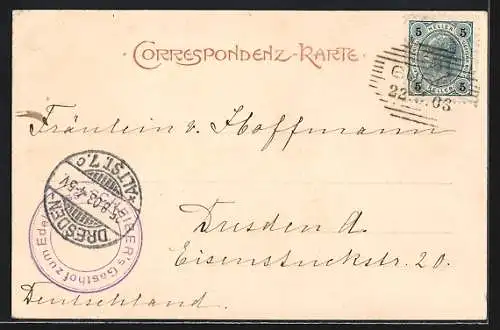 CORRESPONDENZ-KARTE
5 HELLER 5
5 HELLER 5
22. 03
Fräulein v. Hoffmann
DRESDEN-ALTST. 7. c
25.8.03. 4-5V.
Gasthof zum Edel
Dresden A.
Eisenstuckstr. 20.
Deutschland.